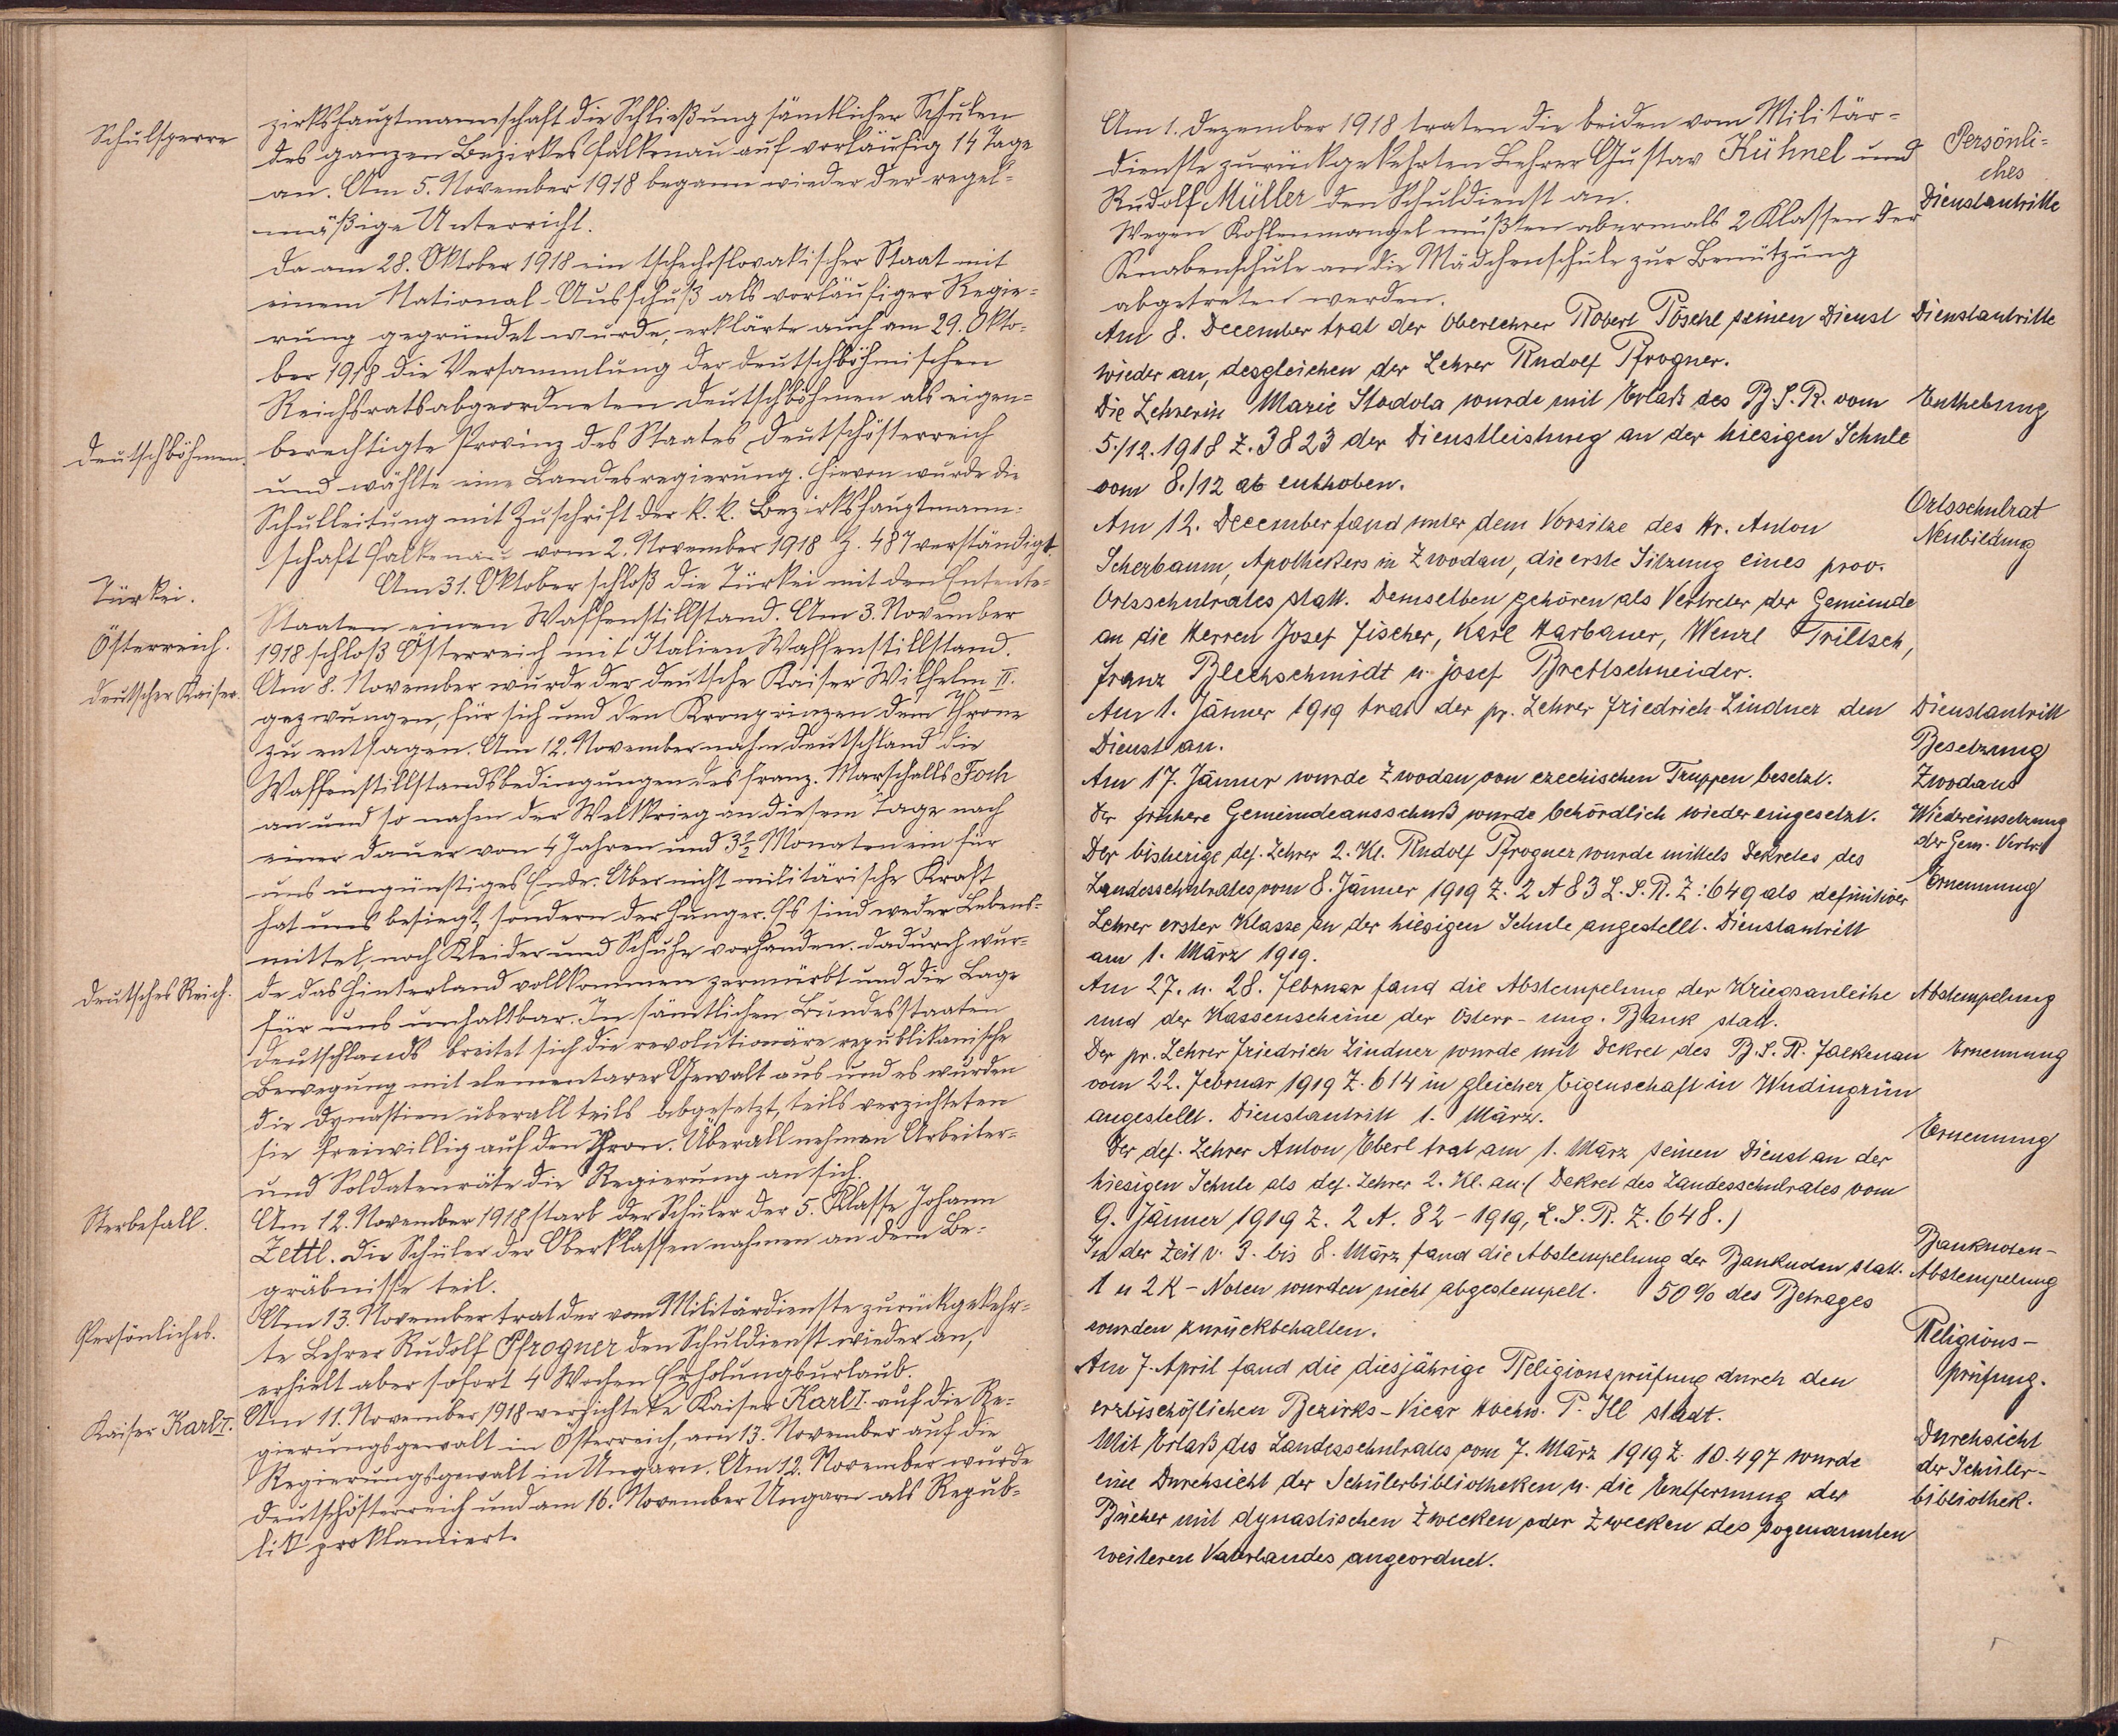 Schulsperre
zirkshauptmannschaft die Schließung sämtlicher Schulen
des ganzen Bezirkes Falkenau auf vorläufig 14 Tage
an. Am 5. November 1918 begann wieder der regel-
mäßige Unterricht.
Da am 28. Oktober 1918 ein tschechoslovakischer Staat mit
einem National-Ausschuß als vorläufiger Regie-
rung gegründet wurde, erklärte auch am 29. Okto-
ber 1918 die Versammlung der deutschböhmischen
Reichsratsabgeordneten Deutschböhmen als eigen-
Deutschböhmen.
berechtigte Provinz des Staates Deutschösterreich
und wählte eine Landesregierung. Hievon wurde die
Schulleitung mit Zuschrift der k. k. Bezirkshauptmann-
schaft Falkenau vom 2. November 1918 Z. 487 verständigt.
Türkei.
Am 31. Oktober schloß die Türkei mit den Entente-
Staaten einen Waffenstillstand. Am 3. November
Österreich.
1918 schloß Österreich mit Italien Waffenstillstand.
Deutscher Kaiser.
Am 8. November wurde der deutsche Kaiser Wilhelm II.
gezwungen, für sich und den Kronprinzen dem Throne
zu entsagen. Am 12. November nahm Deutschland die
Waffenstillstandsbedingungen des franz. Marschalls Foch
an und so nahm der Weltkrieg an diesem Tage nach
einer Dauer von 4 Jahren und 3½ Monaten ein für
uns ungünstiges Ende. Aber nicht militärische Kraft
hat uns besiegt, sondern der Hunger. Es sind weder Lebens-
mittel, noch Kleider und Schuhe vorhanden. Dadurch wur-
Deutsches Reich.
de das Hinterland vollkommen zermürbt und die Lage
für uns unhaltbar. In sämtlichen Bundesstaaten
Deutschlands breitet sich die revolutionäre republikanische
Bewegung mit elementarer Gewalt aus und es wurden
die Dynastien überall teils abgesetzt, teils verzichteten
sie freiwillig auf den Thron. Überall nehmen Arbeiter-
und Soldatenräte die Regierung an sich.
Sterbefall.
Am 12. November 1918 starb der Schüler der 5. Klasse Johann
Zettl. Die Schüler der Oberklassen nahmen an dem Be-
gräbnisse teil.
Persönliches.
Am 13. November trat der vom Militärdienste zurückgekehr-
te Lehrer Rudolf Pfrogner den Schuldienst wieder an,
erhielt aber sofort 4 Wochen Erholungsurlaub.
Kaiser Karl I.
Am 11. November 1918 verzichtete Kaiser Karl I. auf die Re-
gierungsgewalt in Österreich, am 13. November auf die
Regierungsgewalt in Ungarn. Am 12. November wurde
Deutschösterreich und am 16. November Ungarn als Repub-
lik proklamiert.
Am 1. Dezember 1918 traten die beiden vom Militär-
dienste zurückgekehrten Lehrer Gustav Kühnel und
Persönli-
ches
Rudolf Müller den Schuldienst an.
Dienstantritte
Wegen Kohlenmangel mußten abermals 2 Klassen der
Knabenschule an die Mädchenschule zur Benützung
abgetreten werden.
Am 8. December trat der Oberlehrer Robert Pöschl seinen Dienst
Dienstantritte
wieder an, desgleichen der Lehrer Rudolf Pfrogner.
Die Lehrerin Marie Stodola wurde mit Erlaß des B. S. R. vom
Enthebung
5./12. 1918 Z. 3823 der Dienstleistung an der hiesigen Schule
vom 8./12 ab enthoben.
Am 12. December fand unter dem Vorsitze des Hr. Anton
Ortsschulrat
Neubildung
Scherbaum, Apothekers in Zwodau, die erste Sitzung eines prov.
Ortsschulrates statt. Demselben gehören als Vertreter der Gemeinde
an die Herren Josef Fischer, Karl Harbauer, Wenzl Triltsch,
Franz Blechschmidt u. Josef Brettschneider.
Am 1. Jänner 1919 trat der pr. Lehrer Friedrich Lindner den
Dienstantritt
Dienst an.
Am 17. Jänner wurde Zwodau von czechischen Truppen besetzt.
Besetzung
Zwodaus
Der frühere Gemeindeausschuß wurde behördlich wieder eingesetzt.
Wiedereinsetzung
der Gem. Vertr.
Der bisherige def. Lehrer 2. Kl. Rudolf Pfrogner wurde mittels Dekretes des
Landesschulrates vom 8. Jänner 1919 Z. 2 A 83 L. S. R. Z: 649 als definitiver
Ernennung
Lehrer erster Klasse an der hiesigen Schule angestellt. Dienstantritt
am 1. März 1919.
Am 27. u. 28. Februar fand die Abstempelung der Kriegsanleihe
Abstempelung
und der Kassenscheine der Österr-ung. Bank statt.
Der pr. Lehrer Friedrich Lindner wurde mit Dekret des B. S. R. Falkenau
Ernennung
vom 22. Februar 1919 Z. 614 in gleicher Eigenschaft in Wudingrün
angestellt. Dienstantritt 1. März.
Der def. Lehrer Anton Eberl trat am 1. März seinen Dienst an der
Ernennung
hiesigen Schule als def. Lehrer 2. Kl. an. (Dekret des Landesschulrates vom
9. Jänner 1919 Z. 2 A. 82-1919, L. S. R. Z. 648.)
In der Zeit v. 3. bis 8. März fand die Abstempelung der Banknoten statt.
Banknoten-
Abstempelung
1 u 2 K-Noten wurden nicht abgestempelt. 50% des Betrages
wurden zurückbehalten.
Am 7. April fand die diesjährige Religionsprüfung durch den
Religions-
prüfung.
erzbischöflichen Bezirks-Vicar Hochw. P. Ill stadt.
Mit Erlaß des Landesschulrates vom 7. März 1919 Z. 10.497 wurde
Durchsicht
der Schüler-
bibliothek.
eine Durchsicht der Schülerbibliotheken u. die Entfernung der
Bücher mit dynastischen Zwecken oder Zwecken des sogenannten
weiteren Vaterlandes angeordnet.